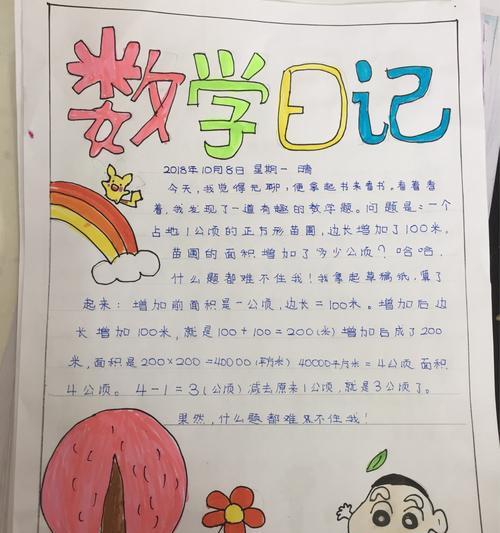 数学日记
2018年10月8日 星期一 晴
今天,我觉得无聊,便拿起书来看书。看着看
着,我发现了一道有趣的数学题。问题是:一个
占地1公顷的正方形苗圃,边长增加了100米,
苗圃的面积增加了多少公顷?哈哈,
什么题都难不住我!我拿起草稿纸,算了
起来:增加前面积是一公顷,边长=100米。增加后边
长增加100米,就是100+100=200(米)增加后成了200
米,面积是200×200=40000(平方米) 40000平方米=4公顷 面积
4公顷。 4-1=3(公顷) 减去原来1公顷,就是3公顷了。
果然,什么题都难不住我!